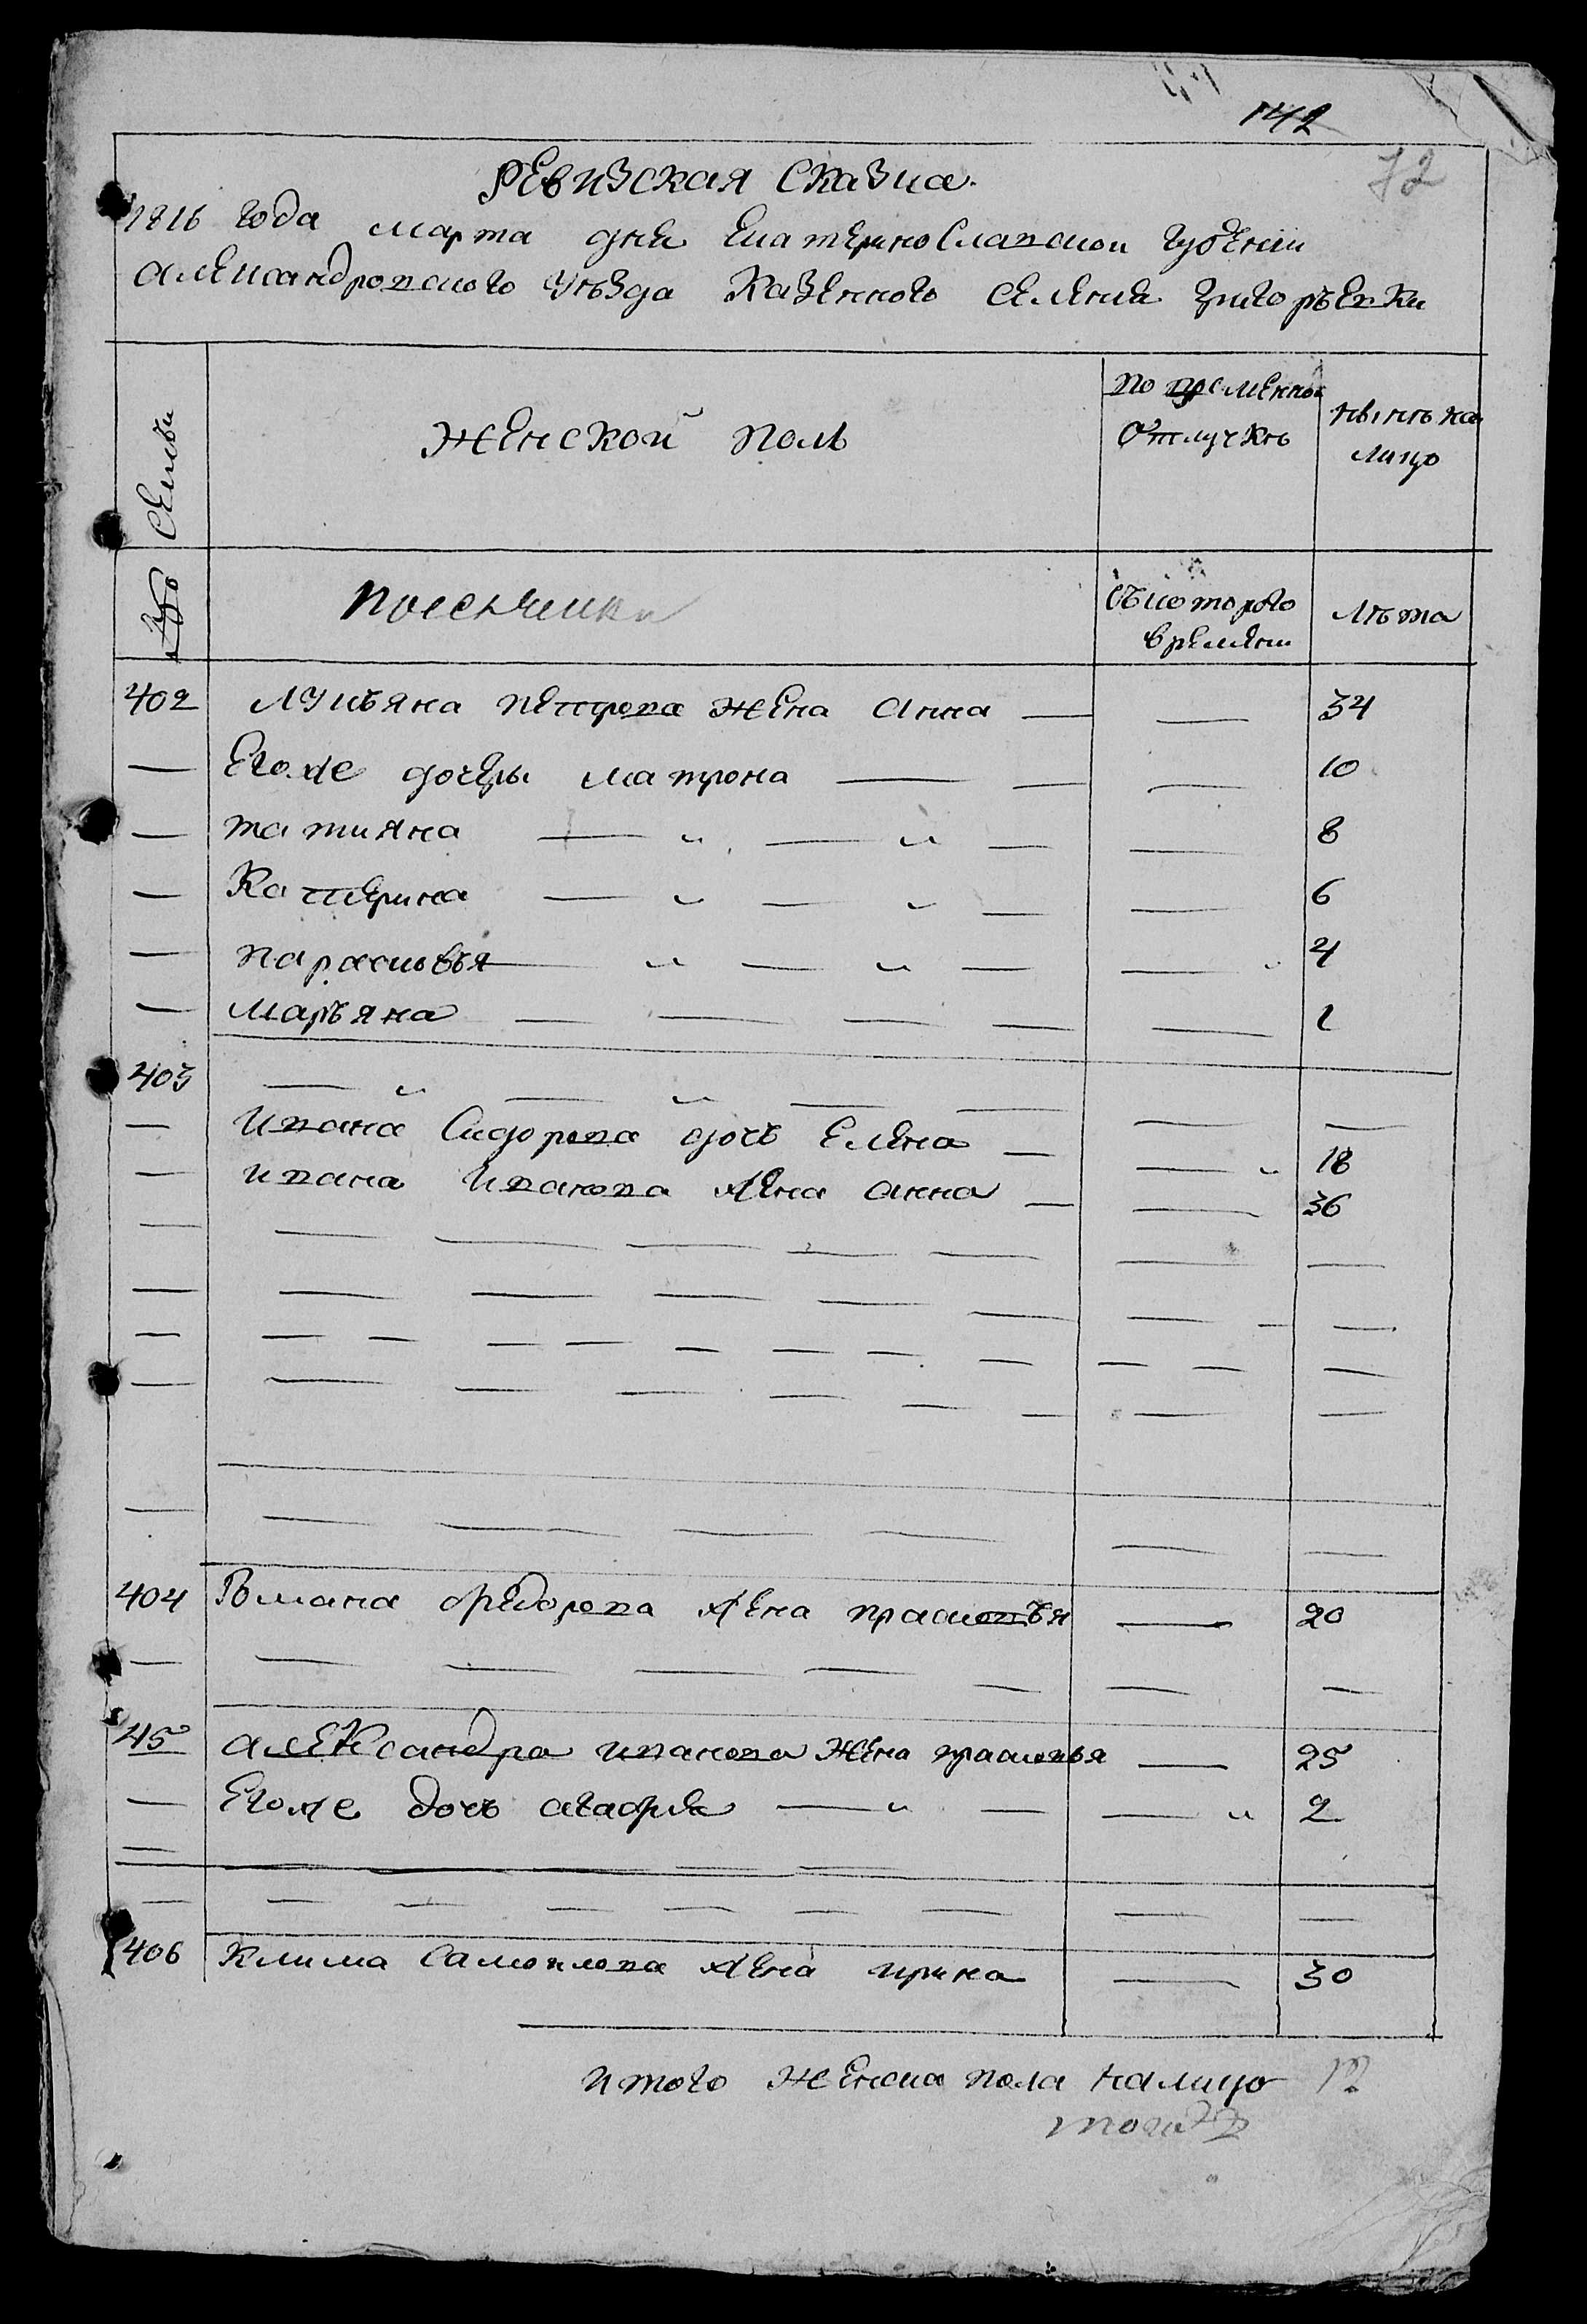 142
72
Ревизская Сказка.
1816 года марта дня Екатеринославской губении
александровского уѣзда Казенного селения григорьевки
Семьи
женской полъ
во временной
отлучкѣ
нынѣ на
лицо
съ которого
времяни
лѣта
402 лукьяна петрова жена анна — — 34
— Егоже дочеръ матрона — — — 10
— татияна — " — " — — 8
— Катерина — " — " — — 6
— парасковья — " — " — — 4
— марьяна — — — — — 1
403 — " — " — —
— ивана Сидорова дочъ Елена — — 18
— ивана иванова жена анна — — 36
404 Романа федорова жена прасковья — 20
405 алеКсандра иванова жена прасковья — 25
— Егоже дочъ агафия — " — — " 2
406 клима самойлова жена ирина — 30
итого женска пола налицо 12